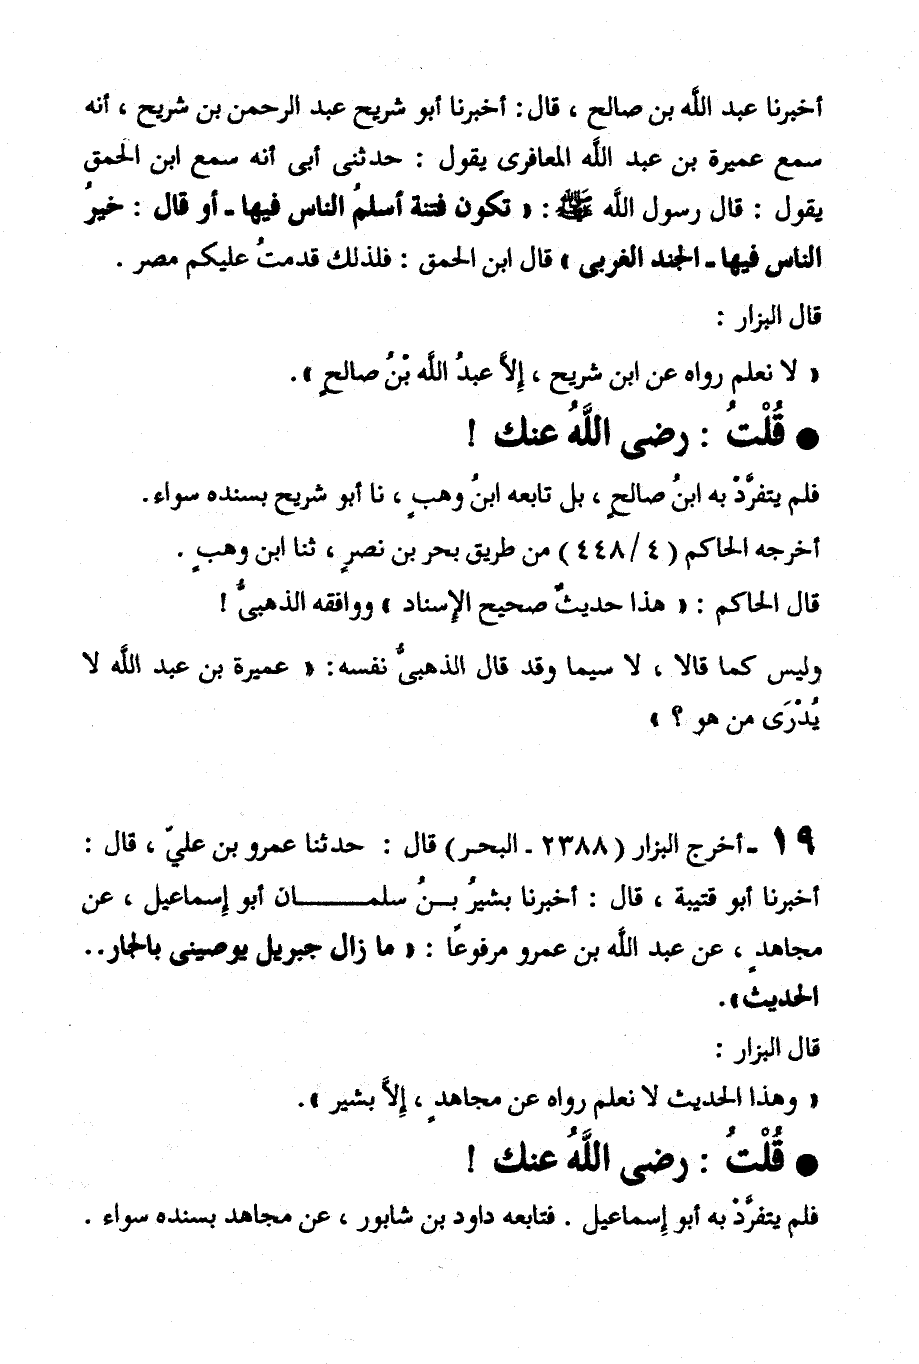 أخبرنا عبد اللَّه بن صالح ، قال : أخبرنا أبو شريح عبد الرحمن بن شريح ، أنه
سمع عميرة بن عبد اللَّه المعافرى يقول : حدثنى أبى أنه سمع ابن الحمق
يقول : قال رسول اللَّه ﷺ : « تكون فتنة أسلمُ الناس فيها ـ أو قال : خيرُ
الناس فيها ـ الجند الغربى » قال ابن الحمق : فلذلك قدمتُ عليكم مصر .
قال البزار :
« لا نعلم رواه عن ابن شريح ، إلاَّ عبدُ اللَّه بْنُ صالحٍ » .
● قُلْتُ : رضى اللَّهُ عنك !
فلم يتفرَّدْ به ابنُ صالحٍ ، بل تابعه ابنُ وهبٍ ، نا أبو شريح بسنده سواء .
أخرجه الحاكم ( ٤ / ٤٤٨ ) من طريق بحر بن نصرٍ ، ثنا ابن وهبٍ .
قال الحاكم : « هذا حديثٌ صحيح الإسناد » ووافقه الذهبىُّ !
وليس كما قالا ، لا سيما وقد قال الذهبىُّ نفسه : « عميرة بن عبد اللَّه لا
يُدْرَى من هو ؟ »
١٩ ـ أخرج البزار ( ٢٣٨٨ ـ البحر ) قال : حدثنا عمرو بن عليّ ، قال :
أخبرنا أبو قتيبة ، قال : أخبرنا بشيرُ بـنُ سلمـــان أبو إسماعيل ، عن
مجاهدٍ ، عن عبد اللَّه بن عمرو مرفوعًا : « ما زال جبريل يوصينى بالجار ..
الحديث » .
قال البزار :
« وهذا الحديث لا نعلم رواه عن مجاهدٍ ، إلاَّ بشير » .
● قُلْتُ : رضى اللَّهُ عنك !
فلم يتفرَّدْ به أبو إسماعيل . فتابعه داود بن شابور ، عن مجاهد بسنده سواء .